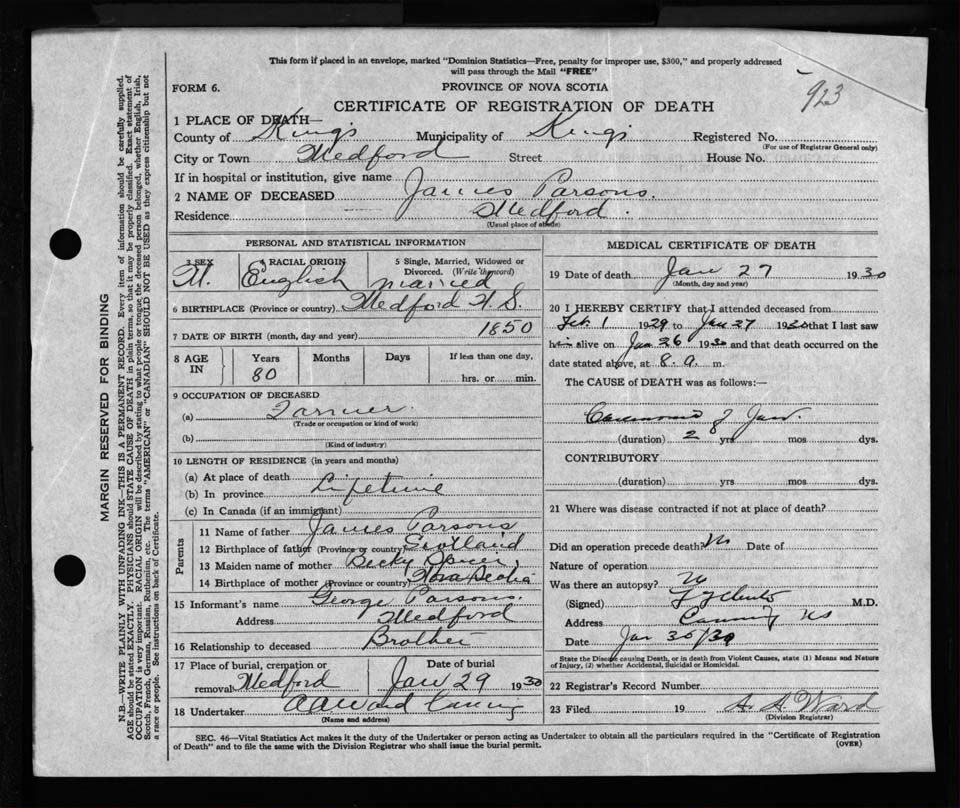 This form if placed in an envelope, marked "Dominion Statistics—Free, penalty for improper use, $300," and properly addressed
will pass through the Mail "FREE"
FORM 6.
PROVINCE OF NOVA SCOTIA
923
CERTIFICATE OF REGISTRATION OF DEATH
1 PLACE OF DEATH—
County of Kings Municipality of Kings Registered No.
(For use of Registrar General only)
City or Town Medford Street House No.
If in hospital or institution, give name
2 NAME OF DECEASED James Parsons.
Residence Medford.
(Usual place of abode)
PERSONAL AND STATISTICAL INFORMATION
3 SEX 4 RACIAL ORIGIN 5 Single, Married, Widowed or Divorced. (Write the word)
M. English married
6 BIRTHPLACE (Province or country) Medford N.S.
7 DATE OF BIRTH (month, day and year) 1850
8 AGE IN Years Months Days If less than one day.
80 hrs. or min.
9 OCCUPATION OF DECEASED
(a) Farmer.
(Trade or occupation or kind of work)
(b)
(Kind of industry)
10 LENGTH OF RESIDENCE (in years and months)
(a) At place of death
(b) In province Lifetime
(c) In Canada (if an immigrant)
Parents
11 Name of father James Parsons
12 Birthplace of father (Province or country)
13 Maiden name of mother Becky
14 Birthplace of mother (Province or country) Nova Scotia
15 Informant's name George Parsons.
Address Medford
16 Relationship to deceased Brother
17 Place of burial, cremation or removal Medford Date of burial Jan 29 1930
18 Undertaker A A Ward Canning
(Name and address)
MEDICAL CERTIFICATE OF DEATH
19 Date of death Jan 27 1930
(Month, day and year)
20 I HEREBY CERTIFY that I attended deceased from
Feb 1 1929 to Jan 27 1930 that I last saw
him alive on Jan 26 1930 and that death occurred on the
date stated above, at 8. a. m.
The CAUSE of DEATH was as follows:—
Carcinoma of Jaw
(duration) 2 yrs. mos. dys.
CONTRIBUTORY
(duration) yrs. mos. dys.
21 Where was disease contracted if not at place of death?
Did an operation precede death? No Date of
Nature of operation
Was there an autopsy? No
(Signed) M.D.
Address Canning
Date Jan 30/30
State the Disease causing Death, or in death from Violent Causes, state (1) Means and Nature
of Injury, (2) whether Accidental, Suicidal or Homicidal.
22 Registrar's Record Number
23 Filed 19 A. A. Ward
(Division Registrar)
SEC. 46—Vital Statistics Act makes it the duty of the Undertaker or person acting as Undertaker to obtain all the particulars required in the "Certificate of Registration
of Death" and to file the same with the Division Registrar who shall issue the burial permit.
(OVER)
MARGIN RESERVED FOR BINDING
N.B.—WRITE PLAINLY WITH UNFADING INK—THIS IS A PERMANENT RECORD. Every item of information should be carefully supplied.
AGE should be stated EXACTLY. PHYSICIANS should STATE CAUSE OF DEATH in plain terms, so that it may be properly classified. Exact statement of
OCCUPATION is very important. RACIAL ORIGIN will be described by stating to what people or tongue the deceased person belonged, whether English, Irish,
Scotch, French, German, Russian, Ruthenian, etc. The terms "AMERICAN" or "CANADIAN" SHOULD NOT BE USED as they express citizenship but not
a race or people. See instructions on back of Certificate.